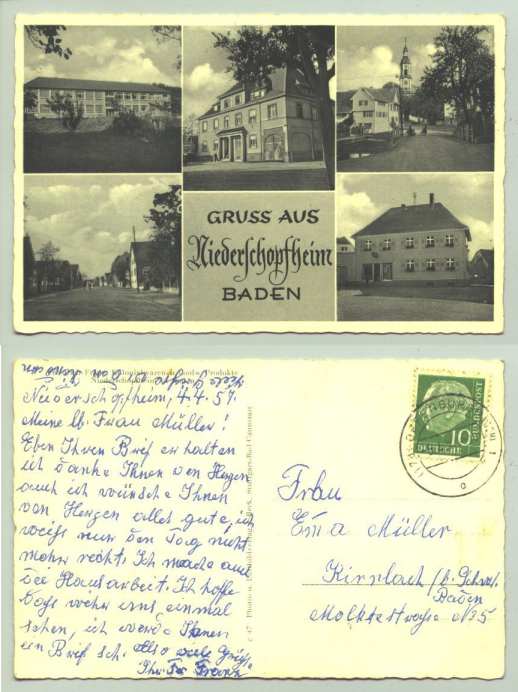 GRUSS AUS
Niederschopfheim
BADEN
Niederschopfheim, 4.4.57.
Meine lb. Frau Müller!
Eben Ihren Brief erhalten
ich danke Ihnen von Herzen
auch ich wünsche Ihnen
von Herzen alles gute, ich
weiß nur den Tag nicht
mehr recht. Ich mache auch
die Hausarbeit. Ich hoffe
daß wir uns einmal
sehen, ich werde Ihnen
ein Brief sch. Also viele Grüße
Ihre Fr. Franz
DEUTSCHE
BUNDESPOST
10
Frau
Emma Müller
Kirrlach /b.
Baden
Moltkestraße No 5